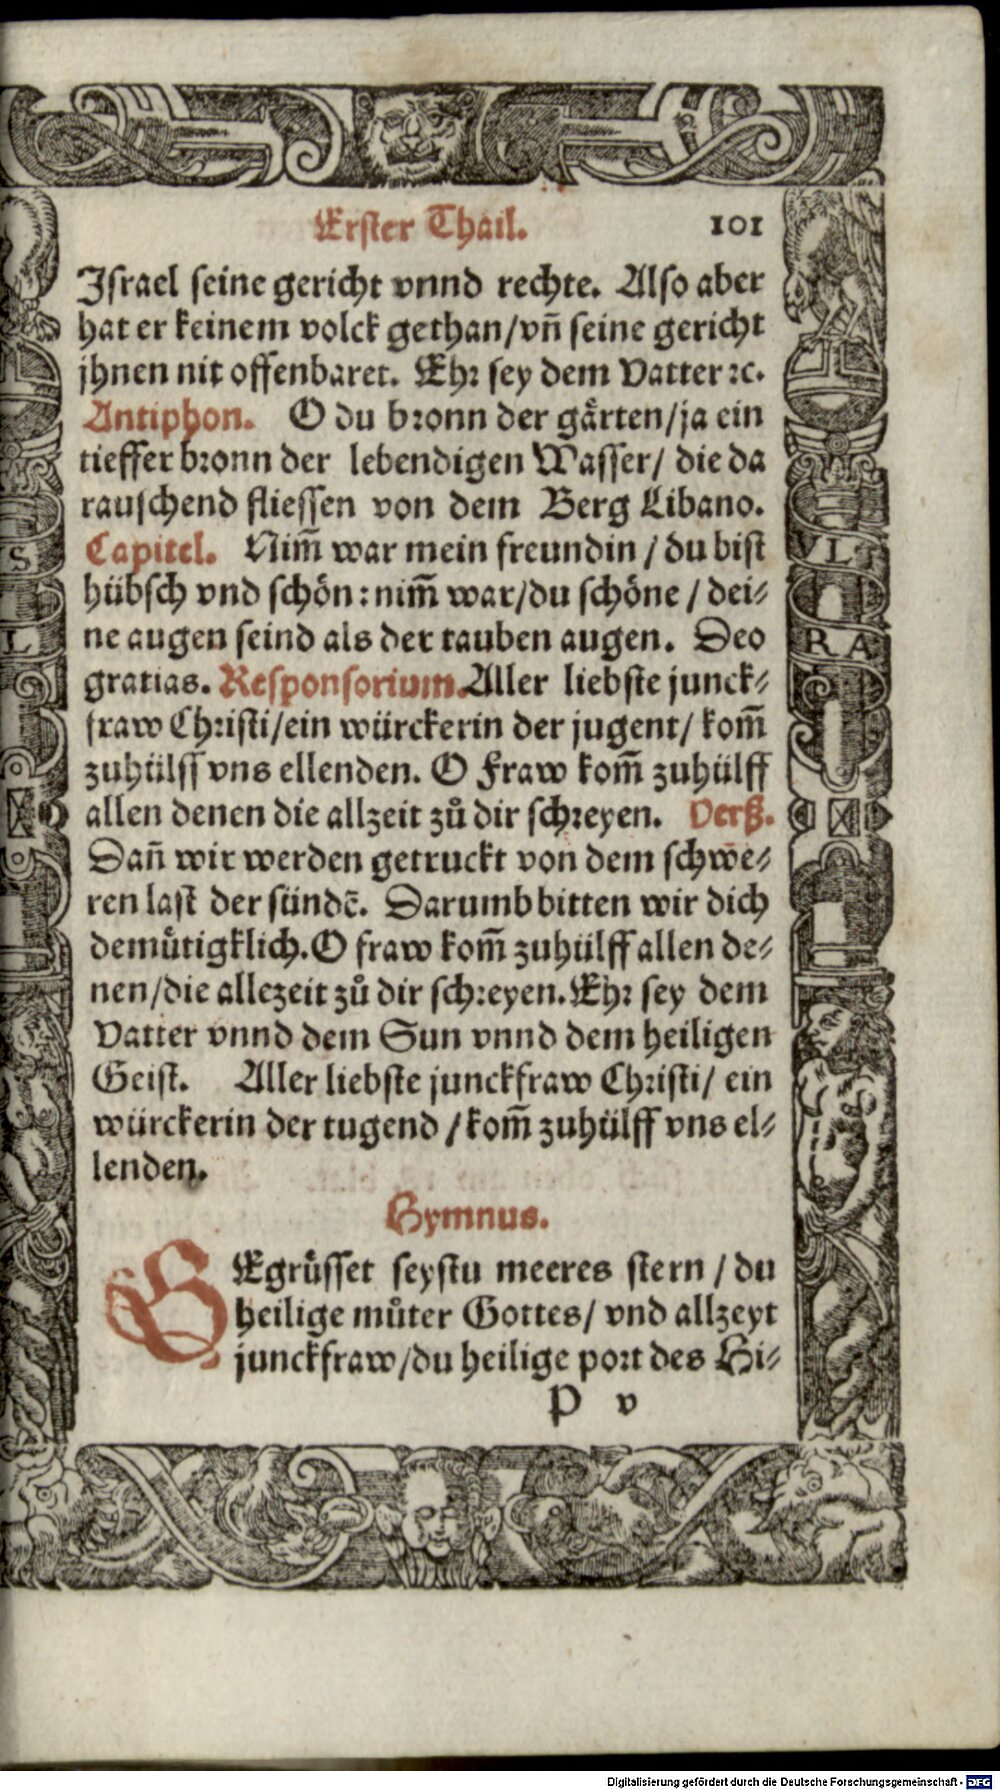 Erster Thail. 101
Israel seine gericht vnnd rechte. Also aber
hat er keinem volck gethan/vñ seine gericht
jhnen nit offenbaret. Ehr sey dem Vatter ꝛc.
Antiphon. O du bronn der gaͤrten/ja ein
tieffer bronn der lebendigen Wasser/ die da
rauschend fliessen von dem Berg Libano.
Capitel. Nim̃ war mein freundin / du bist
hübsch vnd schön: nim̃ war/du schöne / dei⸗
ne augen seind als der tauben augen. Deo
gratias. Responsorium. Aller liebste junck⸗
fraw Christi/ein würckerin der jugent/ kom̃
zuhülff vns ellenden. O Fraw kom̃ zuhülff
allen denen die allzeit zů dir schreyen. Verß.
Dañ wir werden getruckt von dem schwe⸗
ren last der sündẽ. Darumb bitten wir dich
demuͤtigklich. O fraw kom̃ zuhülff allen de⸗
nen/die allezeit zů dir schreyen. Ehr sey dem
Vatter vnnd dem Sun vnnd dem heiligen
Geist. Aller liebste junckfraw Christi/ ein
würckerin der tugend / kom̃ zuhülff vns el⸗
lenden.
Hymnus.
GEgruͤsset seystu meeres stern / du
heilige můter Gottes/ vnd allzeyt
junckfraw/du heilige port des Hi⸗
P v
S
L
VLT
RA
Digitalisierung gefördert durch die Deutsche Forschungsgemeinschaft - DFG